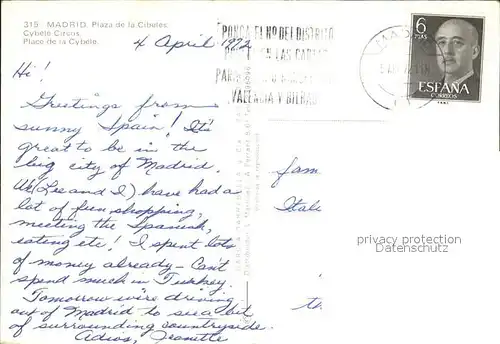 315 MADRID. Plaza de la Cibeles.
Cybele Circus.
Place de la Cybèle.
4 April 1972
PONGA EL Nº DEL DISTRITO
EN LAS CARTAS
VALENCIA Y BILBAO
MADRID
6
PTAS
ESPAÑA
CORREOS
Hi!
Greetings from
sunny Spain! It's
great to be in the
big city of Madrid.
We (Lee and I) have had a
lot of fun shopping,
meeting the Spanish,
eating etc! I spent lots
of money already - Can't
spend much in Turkey.
Tomorrow we're driving
out of Madrid to see a bit
of surrounding countryside.
Adios, Jeanette
fam
Itale
th
privacy protection
www.ansichtskartenversand.com